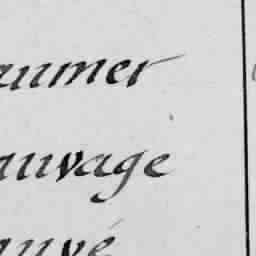 aumer
auvage
auvé